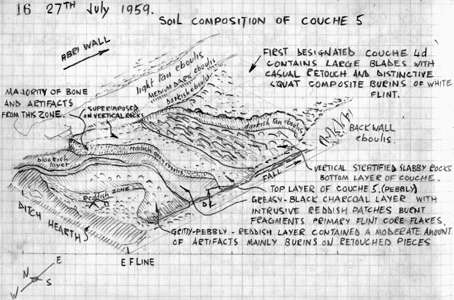 16 27TH July 1959.
SOIL COMPOSITION OF COUCHE 5
ABRI WALL
light tan eboulis
MEDIUM DARK eboulis
FIRST DESIGNATED COUCHE 4d
CONTAINS LARGE BLADES WITH
CASUAL RETOUCH AND DISTINCTIVE
SQUAT COMPOSITE BURINS OF WHITE
FLINT.
MAJORITY OF BONE
AND ARTIFACTS
FROM THIS ZONE.
SUPERIMPOSED
ON VERTICAL ROCKS
BACK WALL
eboulis
layer
FALL
VERTICAL STRATIFIED SLABBY ROCKS
BOTTOM LAYER OF COUCHE.
TOP LAYER OF COUCHE 5. (PEBBLY)
GREASY-BLACK CHARCOAL LAYER WITH
INTRUSIVE REDDISH PATCHES BURNT
FRAGMENTS PRIMARY FLINT CORE FLAKES,
REDDISH ZONE
DITCH HEARTHS
GRITTY-PEBBLY-REDDISH LAYER CONTAINED A MODERATE AMOUNT
OF ARTIFACTS MAINLY BURINS ON RETOUCHED PIECES
E F LINE
E
N
S
W